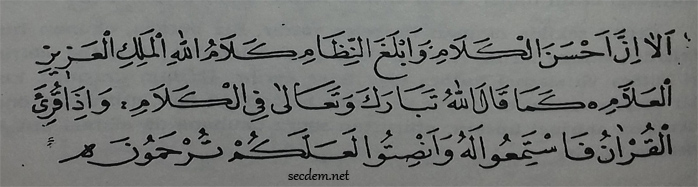 اَلَا اِنَّ اَحْسَنَ الْكَلَامِ وَاَبْلَغَ النِّظَامِ كَلَامُ اللهِ الْمَلِكِ الْعَزِيزِ
الْعَلَّامِ كَمَا قَالَ اللهُ تَبَارَكَ وَتَعَالٰى فِى الْكَلَامِ وَاِذَا قُرِئَ
الْقُرْاٰنُ فَاسْتَمِعُوا لَهُ وَاَنْصِتُوا لَعَلَّكُمْ تُرْحَمُونَ
secdem.net